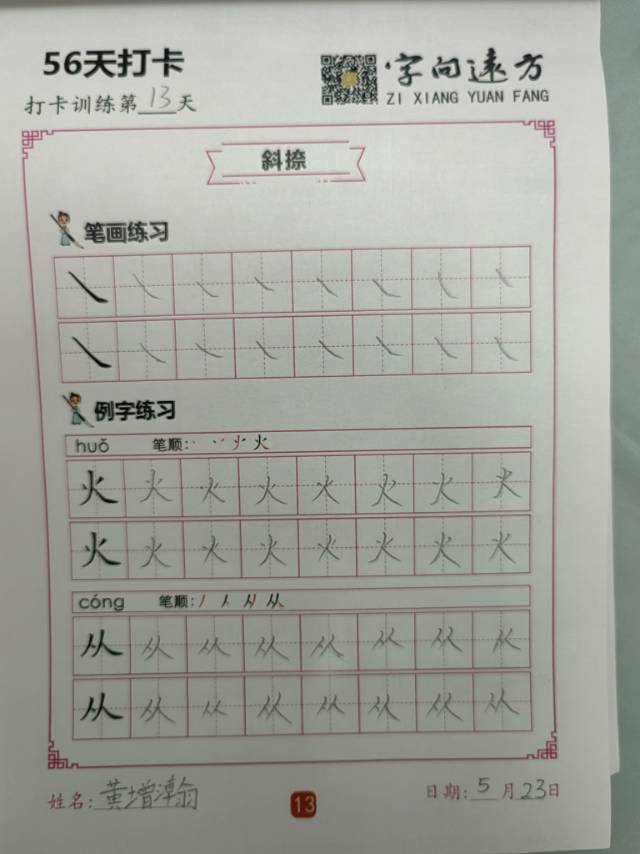 56天打卡
字向远方
打卡训练第13天
ZI XIANG YUAN FANG
斜捺
笔画练习
㇏㇏㇏㇏㇏㇏㇏㇏
㇏㇏㇏㇏㇏㇏㇏㇏
例字练习
huǒ 笔顺:火
火火火火火火火火
火火火火火火火火
cóng 笔顺:丿人从从
从从从从从从从从
从从从从从从从从
姓名:黄增瀚
13
日期:5月23日